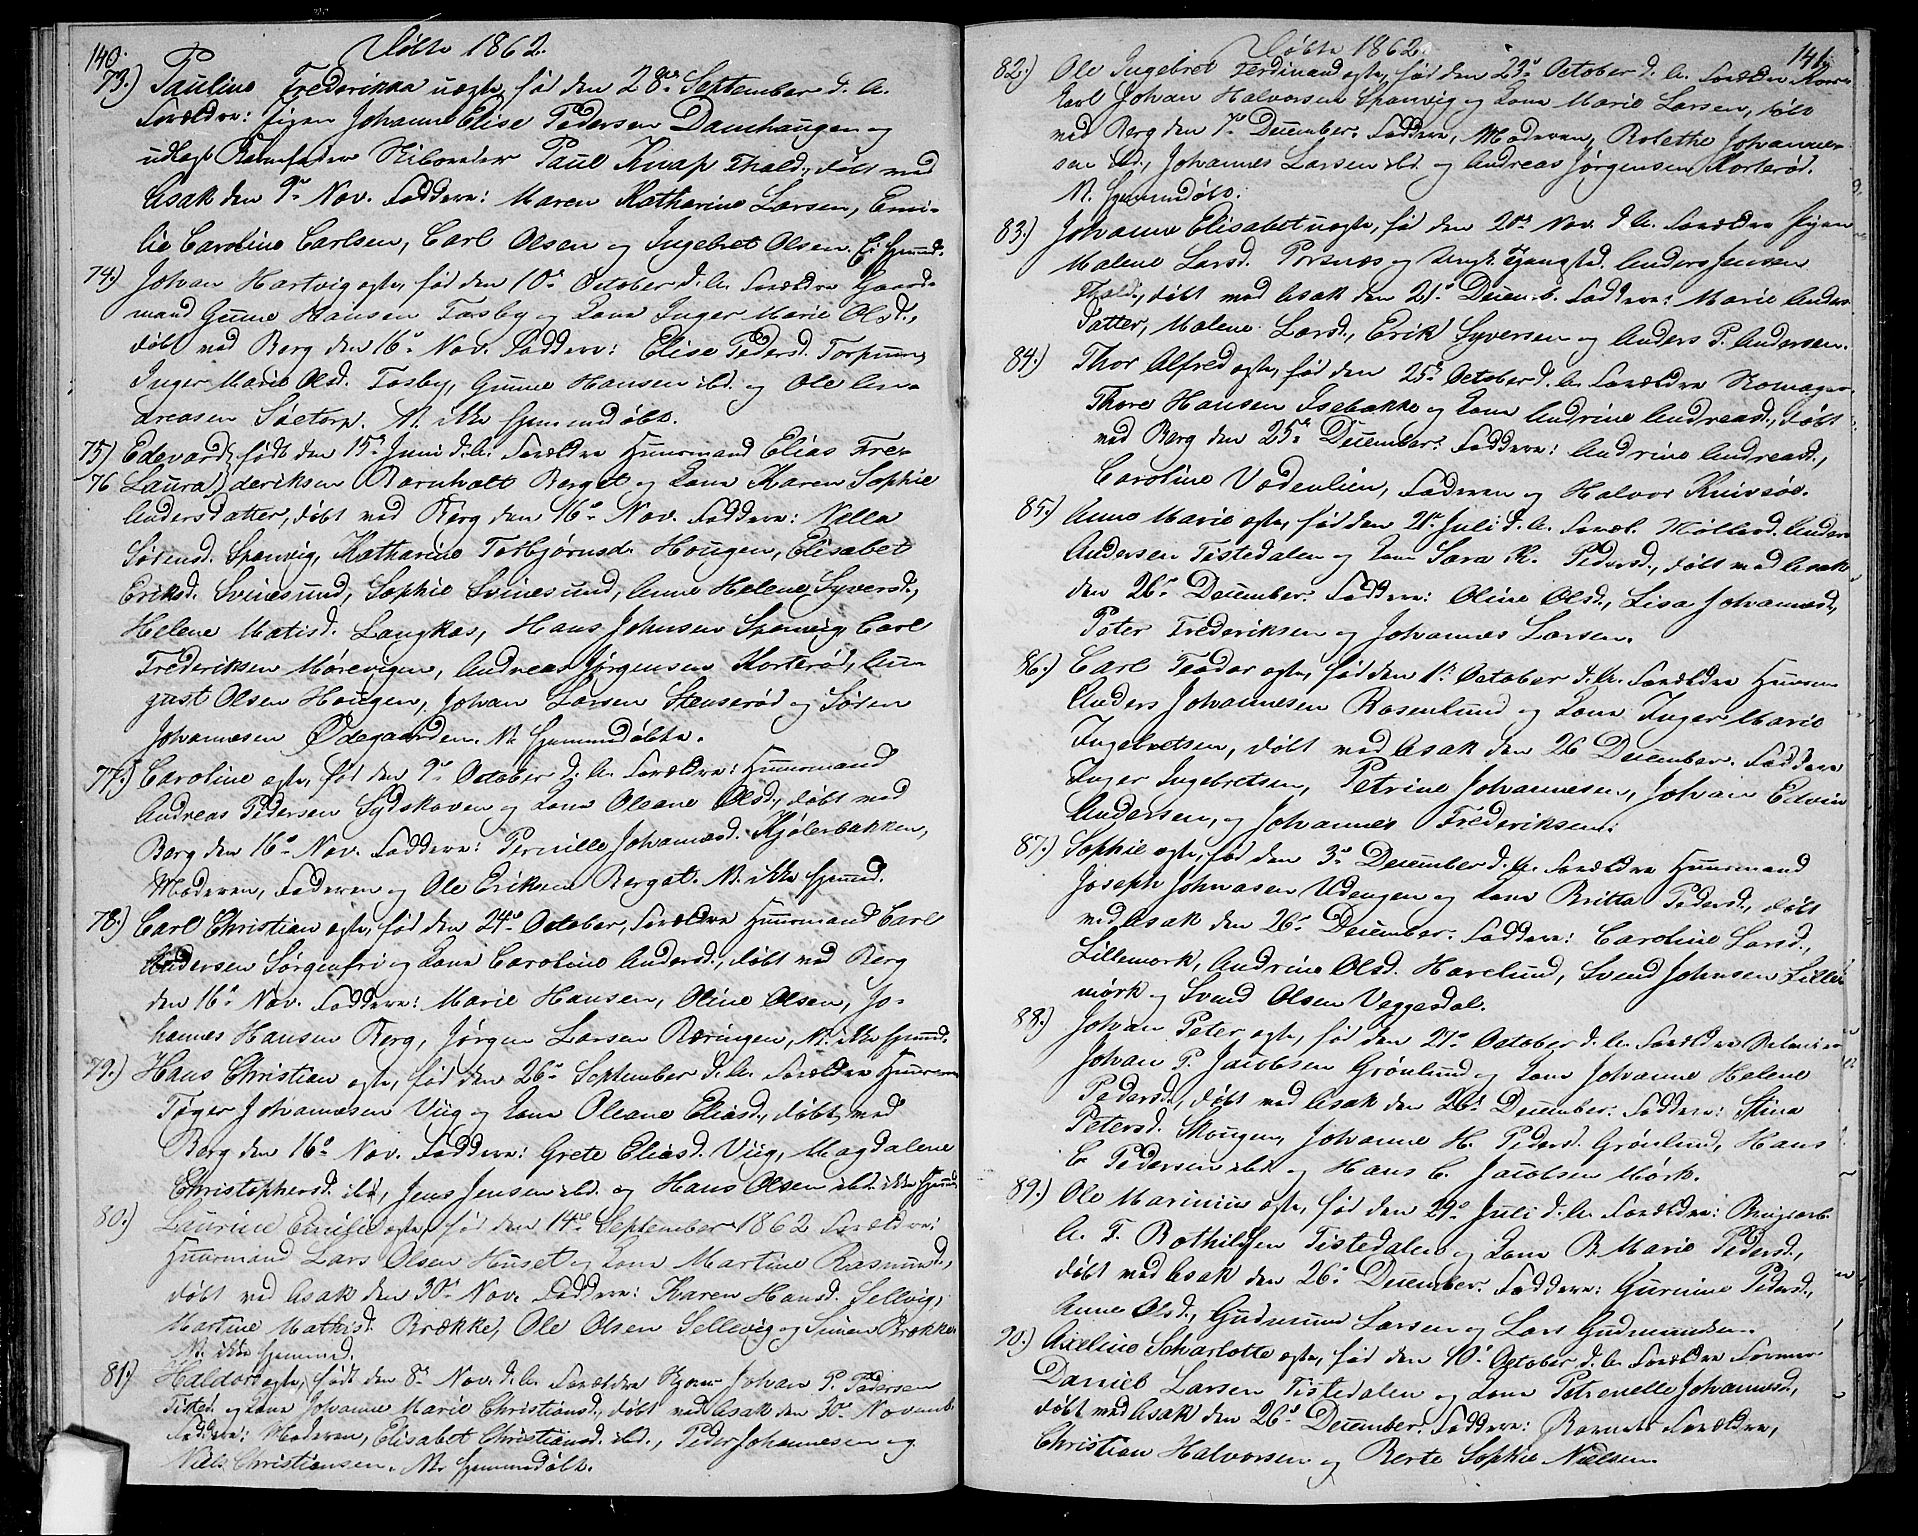 140.
Døbte 1862.
73.) Pauline Frederikka uægte, fød den 28de September d. A.
Forældre: Pigen Johanne Elise Pedersen Damhaugen og
udlagt Barnefader Paul Knap Fhald., døbt ved
Asak den 9de Nov. Faddere: Maren Katharine Larsen, Emi-
lie Caroline Carlsen, Carl Olsen og Ingebret Olsen. Ei hjemmd.
74.) Johan Hartvig ægte, fød den 10de October d. A. Forældre Gaard-
mand Gunne Hansen Tosby og Kone Inger Marie Olsd.,
døbt ved Berg den 16de Nov. Faddere: Elise Pedersd. Torpum,
Inger Marie Olsd. Tosby, Gunne Hansen ibd. og Ole An-
dreasen Sætorp. N. ikke hjemmedøbt.
75) Edevard, født den 15de Juni d. A. Forældre Huusmand Elias Fre-
76 Laura, deriksen Barnholt Berget og Kone Karen Sophie
Andersdatter, døbt ved Berg den 16de Nov. Faddere: Nilla
Sørensd. Sponvig, Katharine Torbjørnsd. Hougen, Elisabet
Eriksd. Svinesund, Sophie Svinesund, Anne Helene Syversd.,
Helene Matisd. Langkas, Hans Johnsen Sponvig, Carl
Frederiksen Mørevigen, Andreas Jørgensen Korterød, Au-
gust Olsen Hougen, Johan Larsen Stenserød og Søren
Johannesen Ødegaarden. N. hjemmedøbte.
77.) Caroline ægte, fød den 9de October d. A. Forældre: Huusmand
Andreas Pedersen Sydskoven og Kone Oleane Olsd., døbt ved
Berg den 16de Nov. Faddere: Pernille Johannesd. Kjølerbakken,
Moderen, Faderen og Ole Eriksen Berget. N. ikke hjemmd.
78.) Carl Christian ægte, fød den 24de October, Forældre Huusmand Carl
Andersen Sørgenfri og Kone Caroline Andersd., døbt ved Berg
den 16de Nov. Faddere: Marie Hansen, Oline Olsen, Jo-
hannes Hansen Berg, Jørgen Larsen Røringen, N. ikke hjemmd.
79.) Hans Christian ægte, fød den 26de September d. A. Forældre Huusm.
Tøger Johannesen Viig og Kone Oleane Eliasd., døbt ved
Berg den 16de Nov. Faddere: Grete Eliasd. Viig, Magdalene
Christophersd. ibd, Jens Jensen ibd. og Hans Olsen ibd. ikke hjemmd.
80.) Laurine Emilie ægte, fød den 14de September 1862 Forældre:
Huusmand Lars Olsen Huset og Kone Martine Rasmusd.,
døbt ved Asak den 30te Nov. Faddere: Karen Hansd. Sellvig,
Martine Mathisd. Brække, Ole Olsen Sellevig og Simen Brække
N. ikke hjemmed.
81.) Haldor ægte, født den 8de Nov. d. A. Forældre Johan P. Pedersen
Tisted. og Kone Johanne Marie Christiansd., døbt ved Asak den 30te Novemb.
Faddere: Moderen, Elisabet Christiansd. ibd., Peder Johannesen og
Niels Christiansen. N. hjemmedøbt.
141.
Døbte 1862.
82.) Ole Ingebret Ferdinand ægte, fød den 23de October d. A. Forældre
Carl Johan Halvorsen Sponvig og Kone Marie Larsen, døbt
ved Berg den 7de December. Faddere, Moderen, Bolethe Johanne-
sen ibd., Johannes Larsen ibd. og Andreas Jørgensen Korterød.
N. hjemmedøbt.
83.) Johanne Elisabet uægte, fød den 20de Nov. d. A. Forældre Pigen
Malene Larsd. Porsnæs og Anders Jensen
Fhald., døbt ved Asak den 21de Decemb. Faddere: Marie Anders-
datter, Malene Larsd., Erik Syversen og Anders P. Andersen.
84.) Thor Alfred ægte, fød den 25de October d. A. Forældre
Thore Hansen Isebakke og Kone Andrine Andreasd., døbt
ved Berg den 25de December. Faddere: Andrine Andreasd.,
Caroline Vedenlien, Faderen og Halvor Knivsøe.
85.) Anne Marie ægte, fød den 21de Juli d. A. Foræl. Møllerd. Anders
Andersen Tistedalen og Kone Sara K. Pedersd., døbt ved Asak
den 26de December. Faddere: Oline Olsd., Lisa Johannesd.,
Peter Frederiksen og Johannes Larsen.
86.) Carl Teodor ægte, fød den 1ste October d. A. Forældre Huusm.
Anders Johannesen Rosenlund og Kone Inger Marie
Ingebretsen, døbt ved Asak den 26 December. Faddere
Inger Ingebretsen, Petrine Johannesen, Johan Edvin
Andersen, og Johannes Frederiksen.
87.) Sophie ægte, fød den 3de December d. A. Forældre Huusmand
Joseph Johnasen Udengen og Kone Britta Pedersd., døbt
ved Asak den 26de December. Faddere: Caroline Larsd.,
Lillemork, Andrine Olsd. Havelund, Svend Johnsen Lille-
mørk og Svend Olsen Veggesdal.
88.) Johan Peter ægte, fød den 21de October d. A. Forældre
Johan P. Jacobsen Grønlund og Kone Johanne Helene
Pedersd., døbt ved Asak den 26de December. Faddere: Stina
Petersd. Skougen, Johanne H. Pedersd. Grønlund, Hans
C. Pedersen ibd. og Hans C. Jacobsen Mørk.
89.) Ole Marinius ægte, fød den 29de Juli d. A. Forældre: Brugsarb.
A. T. Bothilsen Tistedalen og Kone B. Marie Pedersd.,
døbt ved Asak den 26de December. Faddere: Gurinne Pedersd.,
Anne Olsd., Gudmund Larsen og Lars Gudmundsen.
90.) Axeline Scharlotte ægte, fød den 10de October d. A. Forældre Former
Daniel Larsen Tistedalen og Kone Petronelle Johannesd.,
døbt ved Asak den 26de December. Faddere: Barnets Forældre,
Christian Halvorsen og Berte Sophie Nielsen.